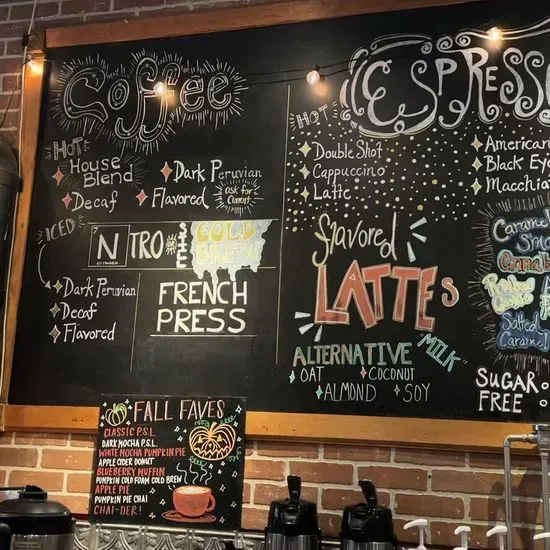 Coffee
HOT
House Blend
Dark Peruvian
Decaf
Flavored
ask for Current
ICED
NTRO
NITROGEN
COLD BREW
Dark Peruvian
Decaf
Flavored
FRENCH
PRESS
ESPRESSO
HOT
Double Shot
Cappuccino
Latte
American
Black Eye
Macchia
flavored
LATTEs
ALTERNATIVE MILK
OAT
COCONUT
ALMOND
SOY
Caramel
Cinna
Salted
Caramel
SUGAR
FREE
FALL FAVES
CLASSIC P.S.L.
DARK MOCHA P.S.L.
WHITE MOCHA PUMPKIN PIE
APPLE CIDER DONUT
BLUEBERRY MUFFIN
PUMPKIN COLD FOAM COLD BREW
APPLE PIE
PUMPKIN PIE CHAI
CHAI-DER!